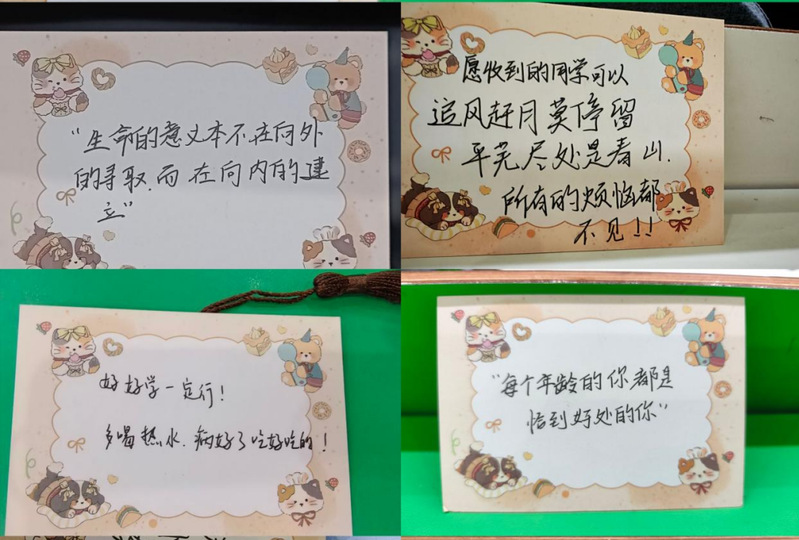 “生命的意义本不在向外
的寻取，而在向内的建
立”
愿收到的同学可以
追风赶月莫停留
平芜尽处是春山.
所有的烦恼都
不见!!
好好学一定行!
多喝热水.病好了吃好吃的!
“每个年龄的你都是
恰到好处的你”